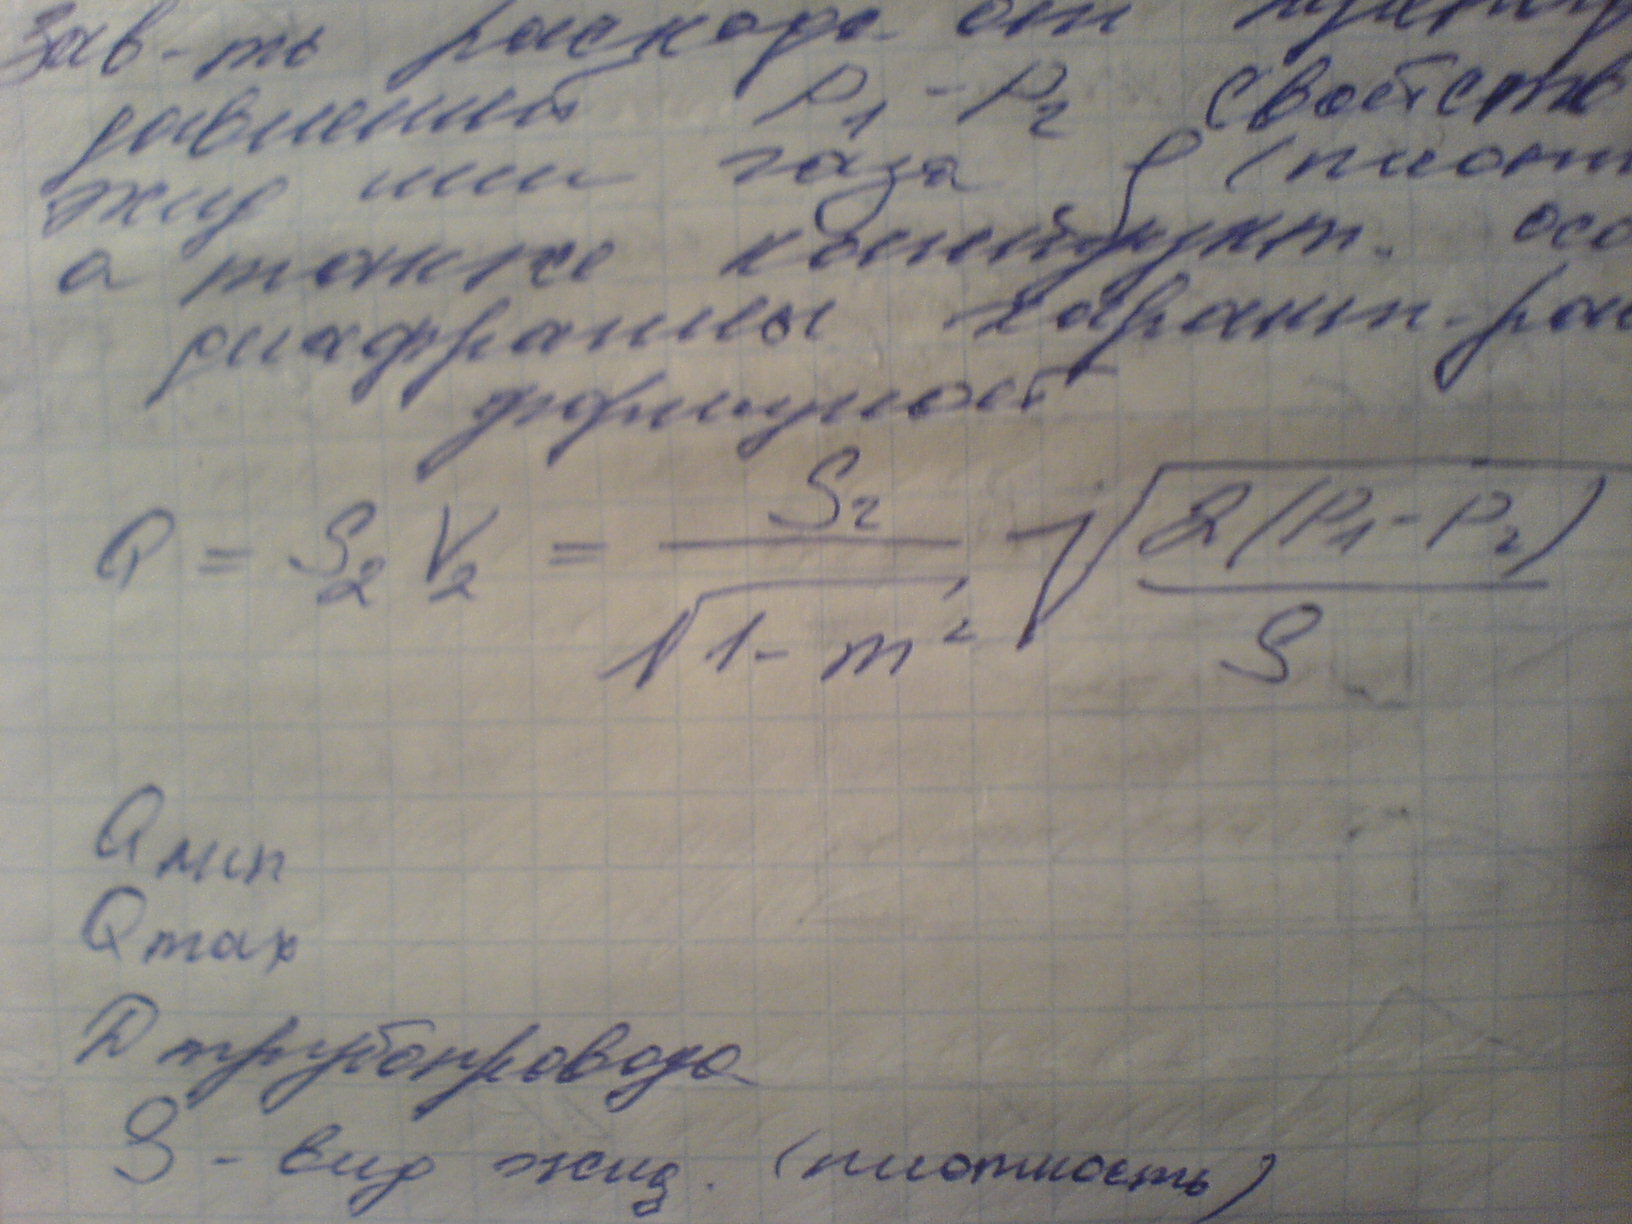 Зав-ть расхода от
давлений P₁ - P₂ свойств
жид или газа ρ (плотн
а также конструкт. осо
диафрагмы характ-ра
формулой
Q = S₂ V₂ = S₂ / √(1 - m²) √(2(P₁ - P₂) / ρ)
Qмin
Qmax
D трубопровода
ρ - вид жид. (плотность)